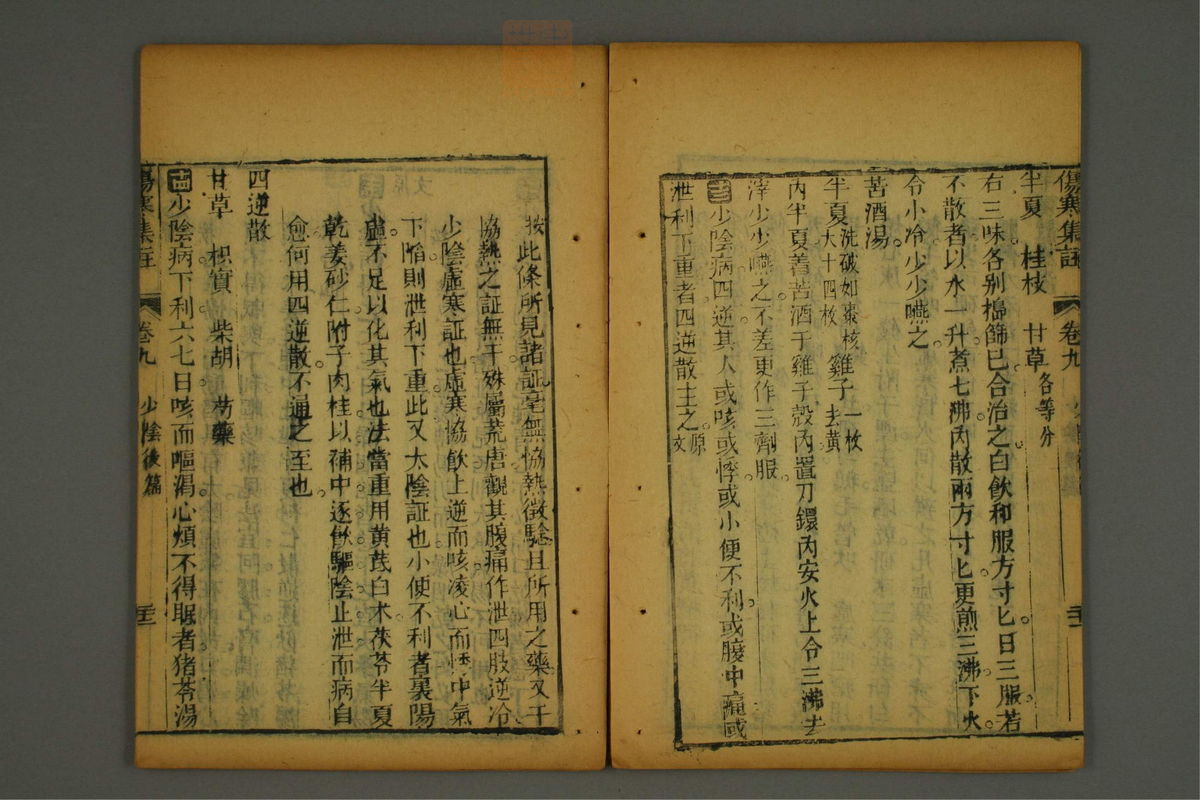 傷寒集註 卷九
半夏 桂枝 甘草各等分
右三味各別搗篩已合治之白飲和服方寸匕日三服若
不散者以水一升煮七沸內散兩方寸匕更煎三沸下火
令小冷少少嚥之
苦酒湯
半夏洗破如棗核大十四枚 雞子一枚去黃
內半夏着苦酒于雞子殼內置刀鐶內安火上令三沸去
滓少少嚥之不差更作三劑服
少陰病四逆其人或咳或悸或小便不利或腹中痛或
泄利下重者四逆散主之原文
按此條所見諸証毫無恊熱徵驗且所用之藥又于
恊熱之証無干殊屬荒唐觀其腹痛作泄四肢逆冷
少陰虛寒証也虛寒恊飲上逆而咳凌心而悸中氣
下陷則泄利下重此又太陰証也小便不利者裏陽
虛不足以化其氣也法當重用黃芪白术茯苓半夏
乾姜砂仁附子肉桂以補中逐飲驅陰止泄而病自
愈何用四逆散不通之至也
四逆散
甘草 枳實 柴胡 芍藥
少陰病下利六七日咳而嘔渴心煩不得眠者猪苓湯
傷寒集註 卷九 少陰後篇